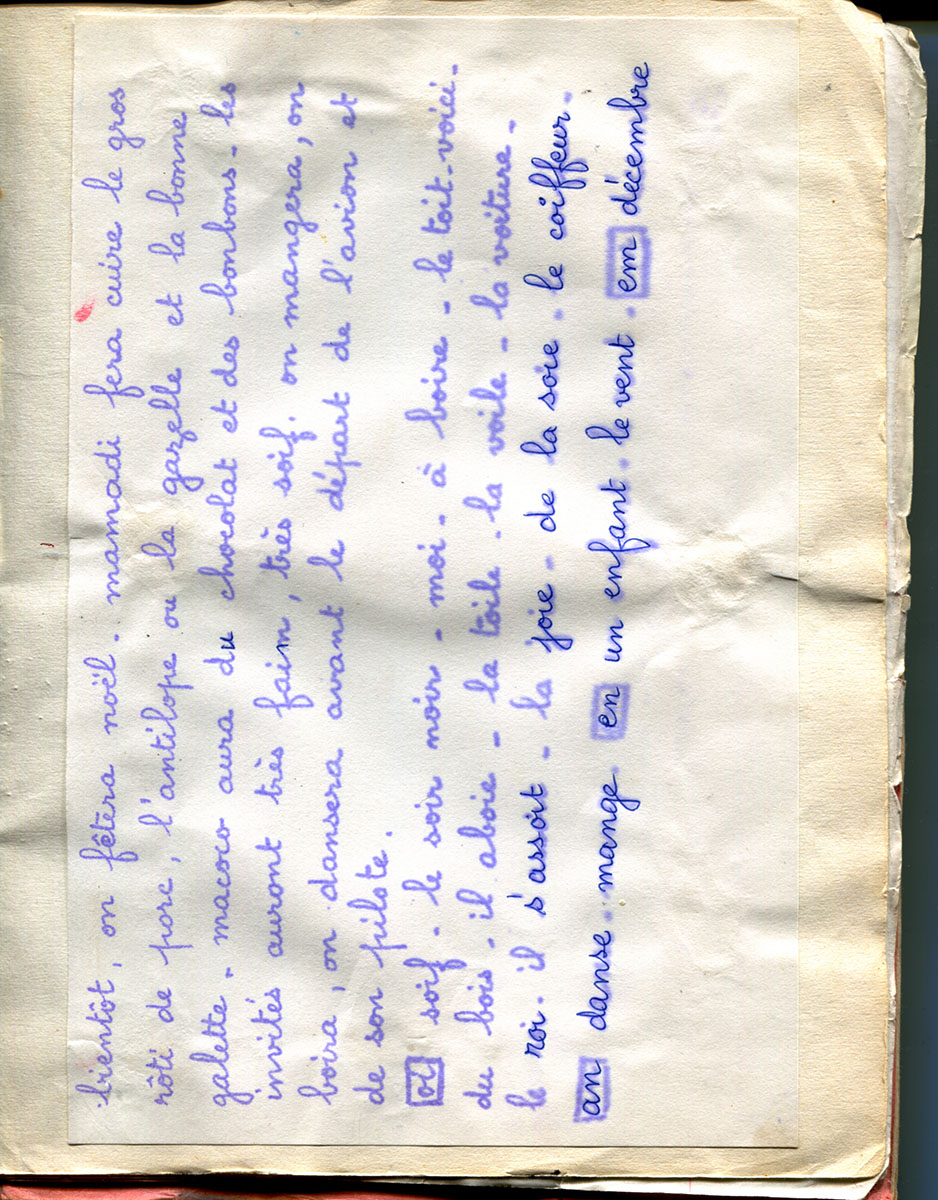 bientôt, on fêtera noël. mamadi fera cuire le gros
rôti de porc, l'antilope ou la gazelle et la bonne
galette - macoco aura du chocolat et des bonbons - les
invités auront très faim, très soif. on mangera, on
boira, on dansera avant le départ de l'avion et
de son pilote.
oi soif - le soir noir - moi - à boire - le toit - voici -
du bois - il aboie - la toile - la voile - la voiture -
le roi - il s'assoit - la joie - de la soie - le coiffeur -
an danse - mange en un enfant - le vent - em décembre